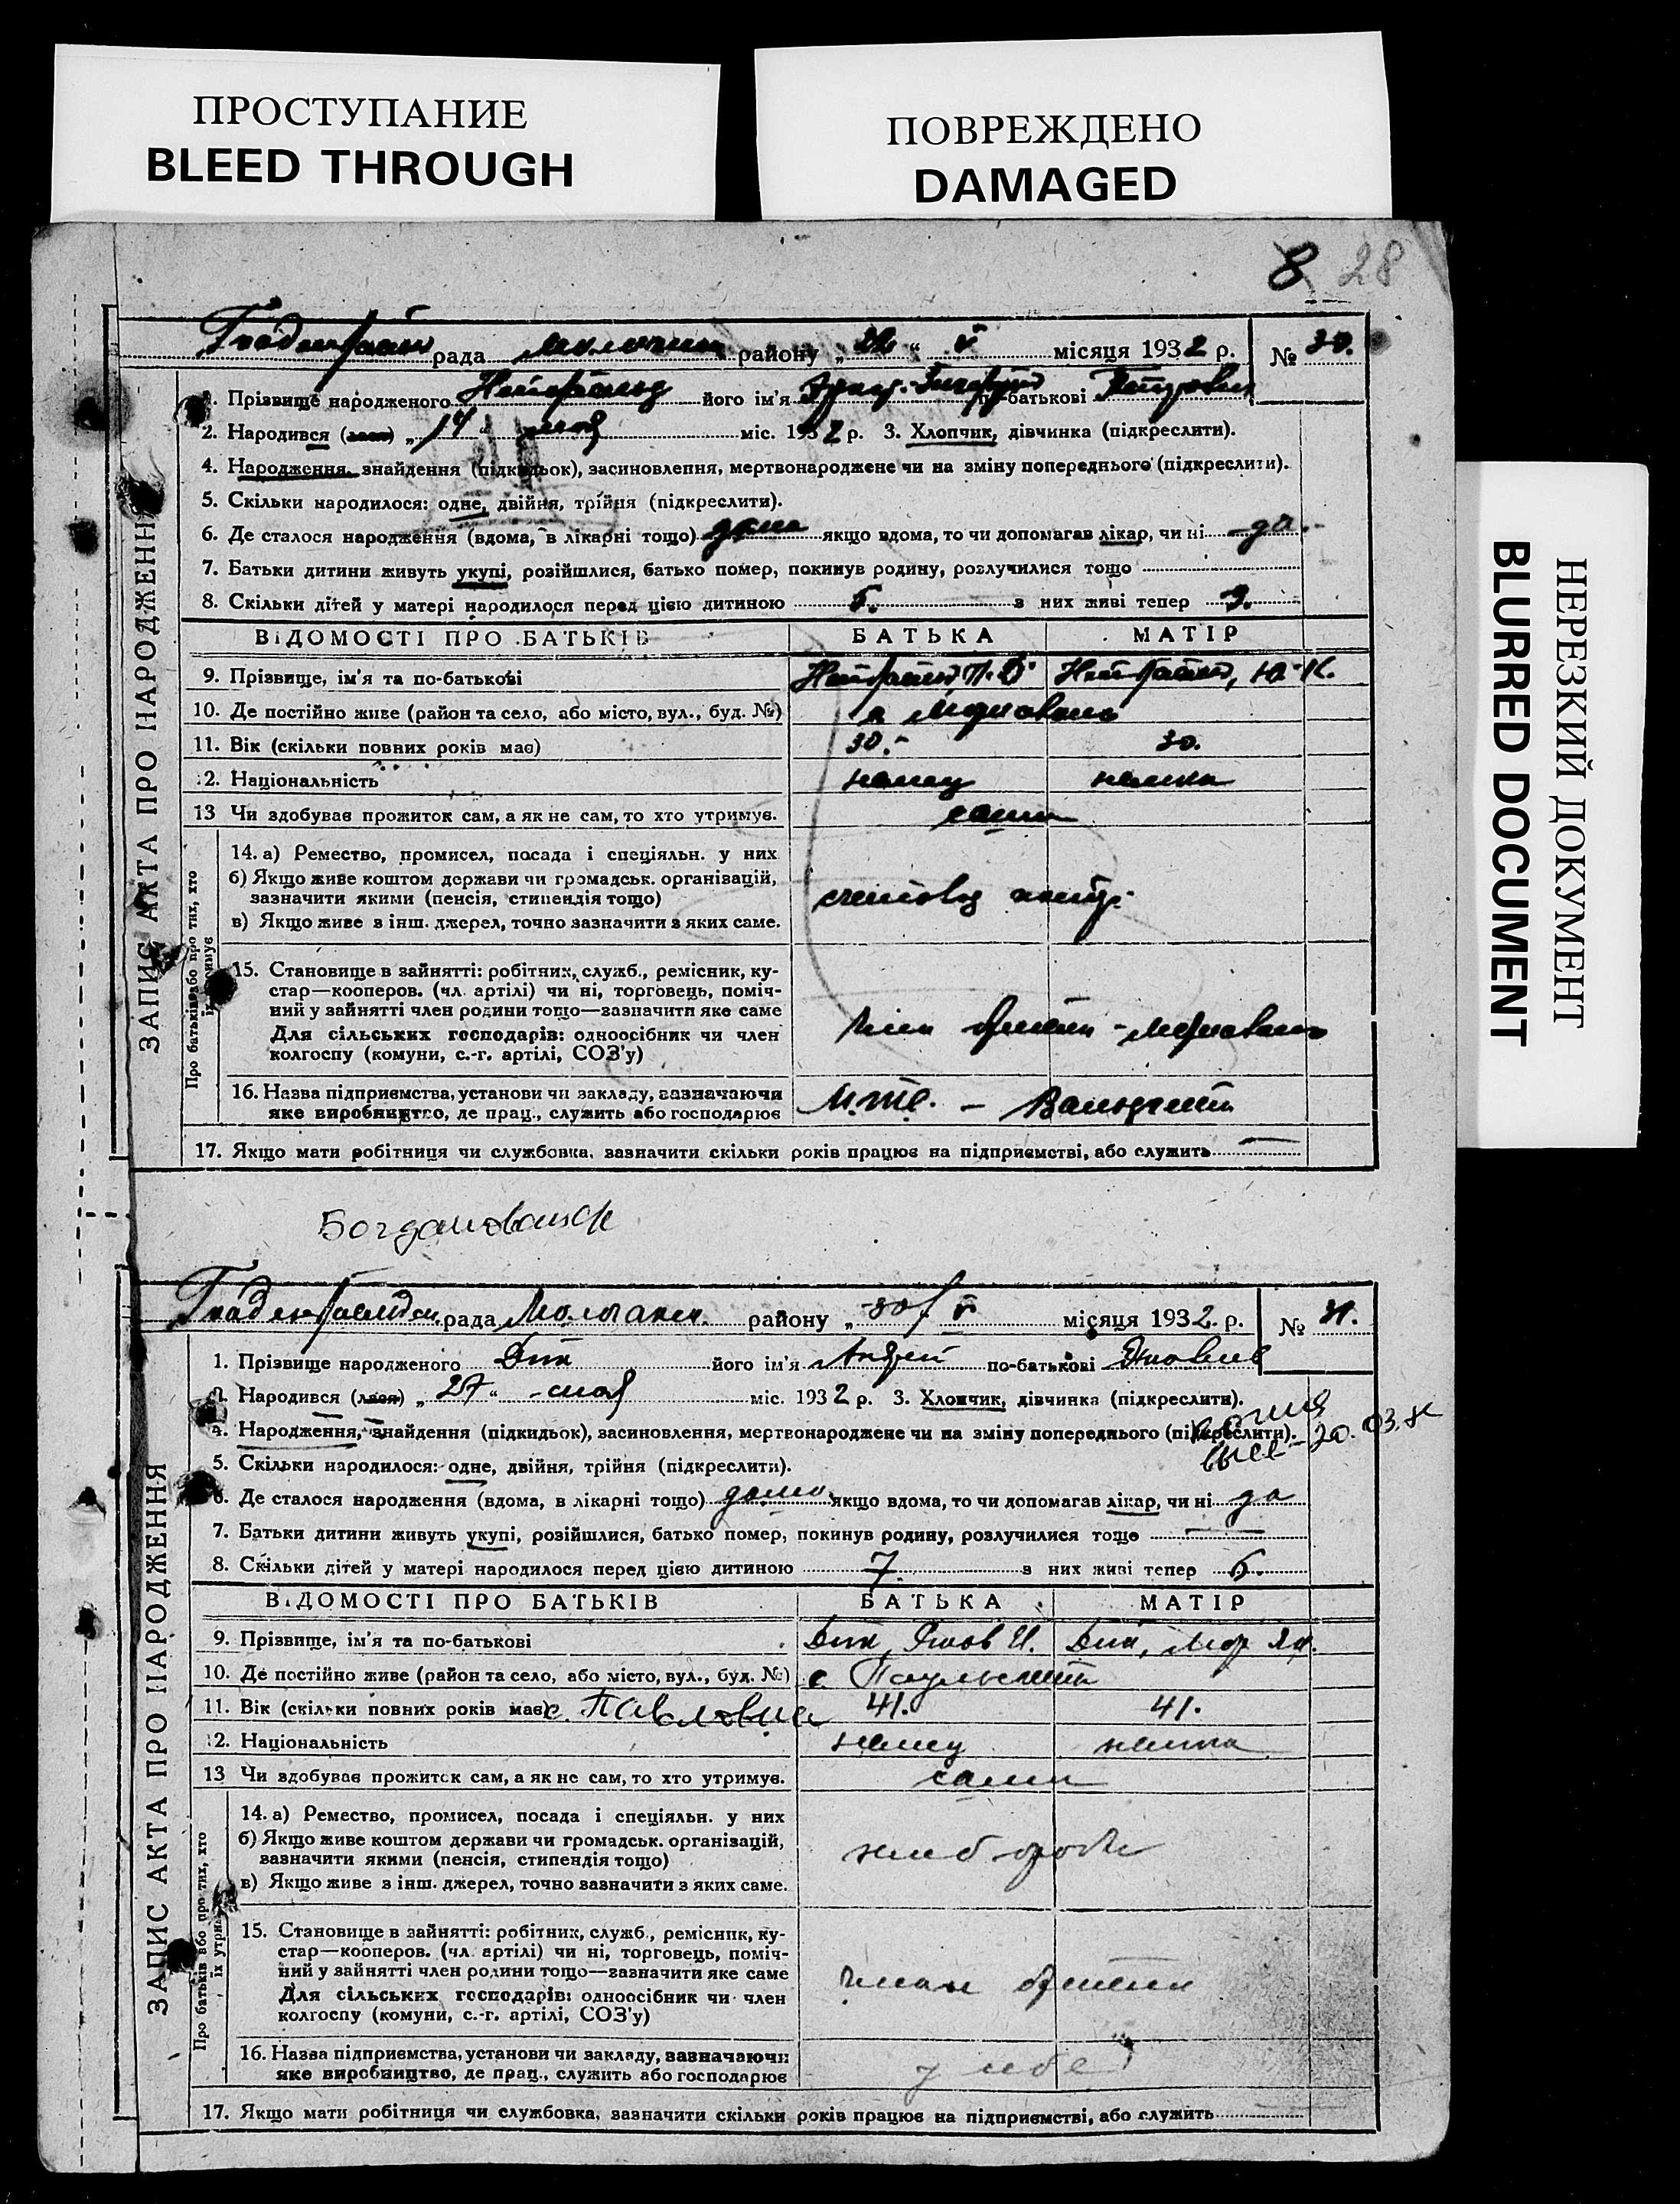 ПРОСТУПАНИЕ
BLEED THROUGH
ПОВРЕЖДЕНО
DAMAGED
НЕРЕЗКИЙ ДОКУМЕНТ
BLURRED DOCUMENT
8 28
рада района „ “ V місяця 1932 р. № 30.
ЗАПИС АКТА ПРО НАРОДЖЕННЯ
1. Прізвище народженого його ім'я по-батькові
2. Народився „14“ мая міс. 1932 р. 3. Хлопчик, дівчинка (підкреслити).
4. Народження, знайдення (підкидьок), засиновлення, мертвонароджене чи на зміну попереднього (підкреслити).
5. Скільки народилося: одне, двійня, трійня (підкреслити).
6. Де сталося народження (вдома, в лікарні тощо) дома якщо вдома, то чи допомагав лікар, чи ні да.
7. Батьки дитини живуть укупі, розійшлися, батько помер, покинув родину, розлучилися тощо
8. Скільки дітей у матері народилося перед цією дитиною 5. з них живі тепер 3.
ВІДОМОСТІ ПРО БАТЬКІВ БАТЬКА МАТІР
9. Прізвище, ім'я та по-батькові
10. Де постійно живе (район та село, або місто, вул., буд. №)
11. Вік (скільки повних років має) 30. 30.
12. Національність немец немка
13 Чи здобуває прожиток сам, а як не сам, то хто утримує. сами
Про батьків або про тих, хто їх утримує
14. а) Ремество, промисел, посада і спеціяльн. у них
б) Якщо живе коштом держави чи громадськ. організацій,
зазначити якими (пенсія, стипендія тощо)
счетовод
в) Якщо живе з інш. джерел, точно зазначити з яких саме.
15. Становище в зайнятті: робітник, служб., ремісник, ку-
стар—кооперов. (чл. артілі) чи ні, торговець, поміч-
ний у зайнятті член родини тощо—зазначити яке саме
Для сільських господарів: одноосібник чи член
колгоспу (комуни, с.-г. артілі, СОЗ'у)
член артели
16. Назва підприємства, установи чи закладу, зазначаючи
яке виробництво, де прац., служить або господарює
17. Якщо мати робітниця чи службовка, зазначити скільки років працює на підприємстві, або служить
рада Молочанск. району „30“ V місяця 1932 р. № 31.
ЗАПИС АКТА ПРО НАРОДЖЕННЯ
1. Прізвище народженого Дик його ім'я Андрей по-батькові
2. Народився „27“ мая міс. 1932 р. 3. Хлопчик, дівчинка (підкреслити).
4. Народження, знайдення (підкидьок), засиновлення, мертвонароджене чи на зміну попереднього (підкреслити).
5. Скільки народилося: одне, двійня, трійня (підкреслити).
6. Де сталося народження (вдома, в лікарні тощо) дома якщо вдома, то чи допомагав лікар, чи ні да
7. Батьки дитини живуть укупі, розійшлися, батько помер, покинув родину, розлучилися тоще
8. Скільки дітей у матері народилося перед цією дитиною 7. з них живі тепер 6.
ВІДОМОСТІ ПРО БАТЬКІВ БАТЬКА МАТІР
9. Прізвище, ім'я та по-батькові Дик, Яков И. Дик,
10. Де постійно живе (район та село, або місто, вул., буд. №) с.
11. Вік (скільки повних років має) с. Павловка 41. 41.
12. Національність немец немка
13 Чи здобуває прожиток сам, а як не сам, то хто утримує. сами
Про батьків або про тих, хто їх утримує
14. а) Ремество, промисел, посада і спеціяльн. у них
б) Якщо живе коштом держави чи громадськ. організацій,
зазначити якими (пенсія, стипендія тощо)
в) Якщо живе з інш. джерел, точно зазначити з яких саме.
15. Становище в зайнятті: робітник, служб., ремісник, ку-
стар—кооперов. (чл. артілі) чи ні, торговець, поміч-
ний у зайнятті член родини тощо—зазначити яке саме
Для сільських господарів: одноосібник чи член
колгоспу (комуни, с.-г. артілі, СОЗ'у)
член артели
16. Назва підприємства, установи чи закладу, зазначаючи
яке виробництво, де прац., служить або господарює
у себе
17. Якщо мати робітниця чи службовка, зазначити скільки років працює на підприємстві, або служить